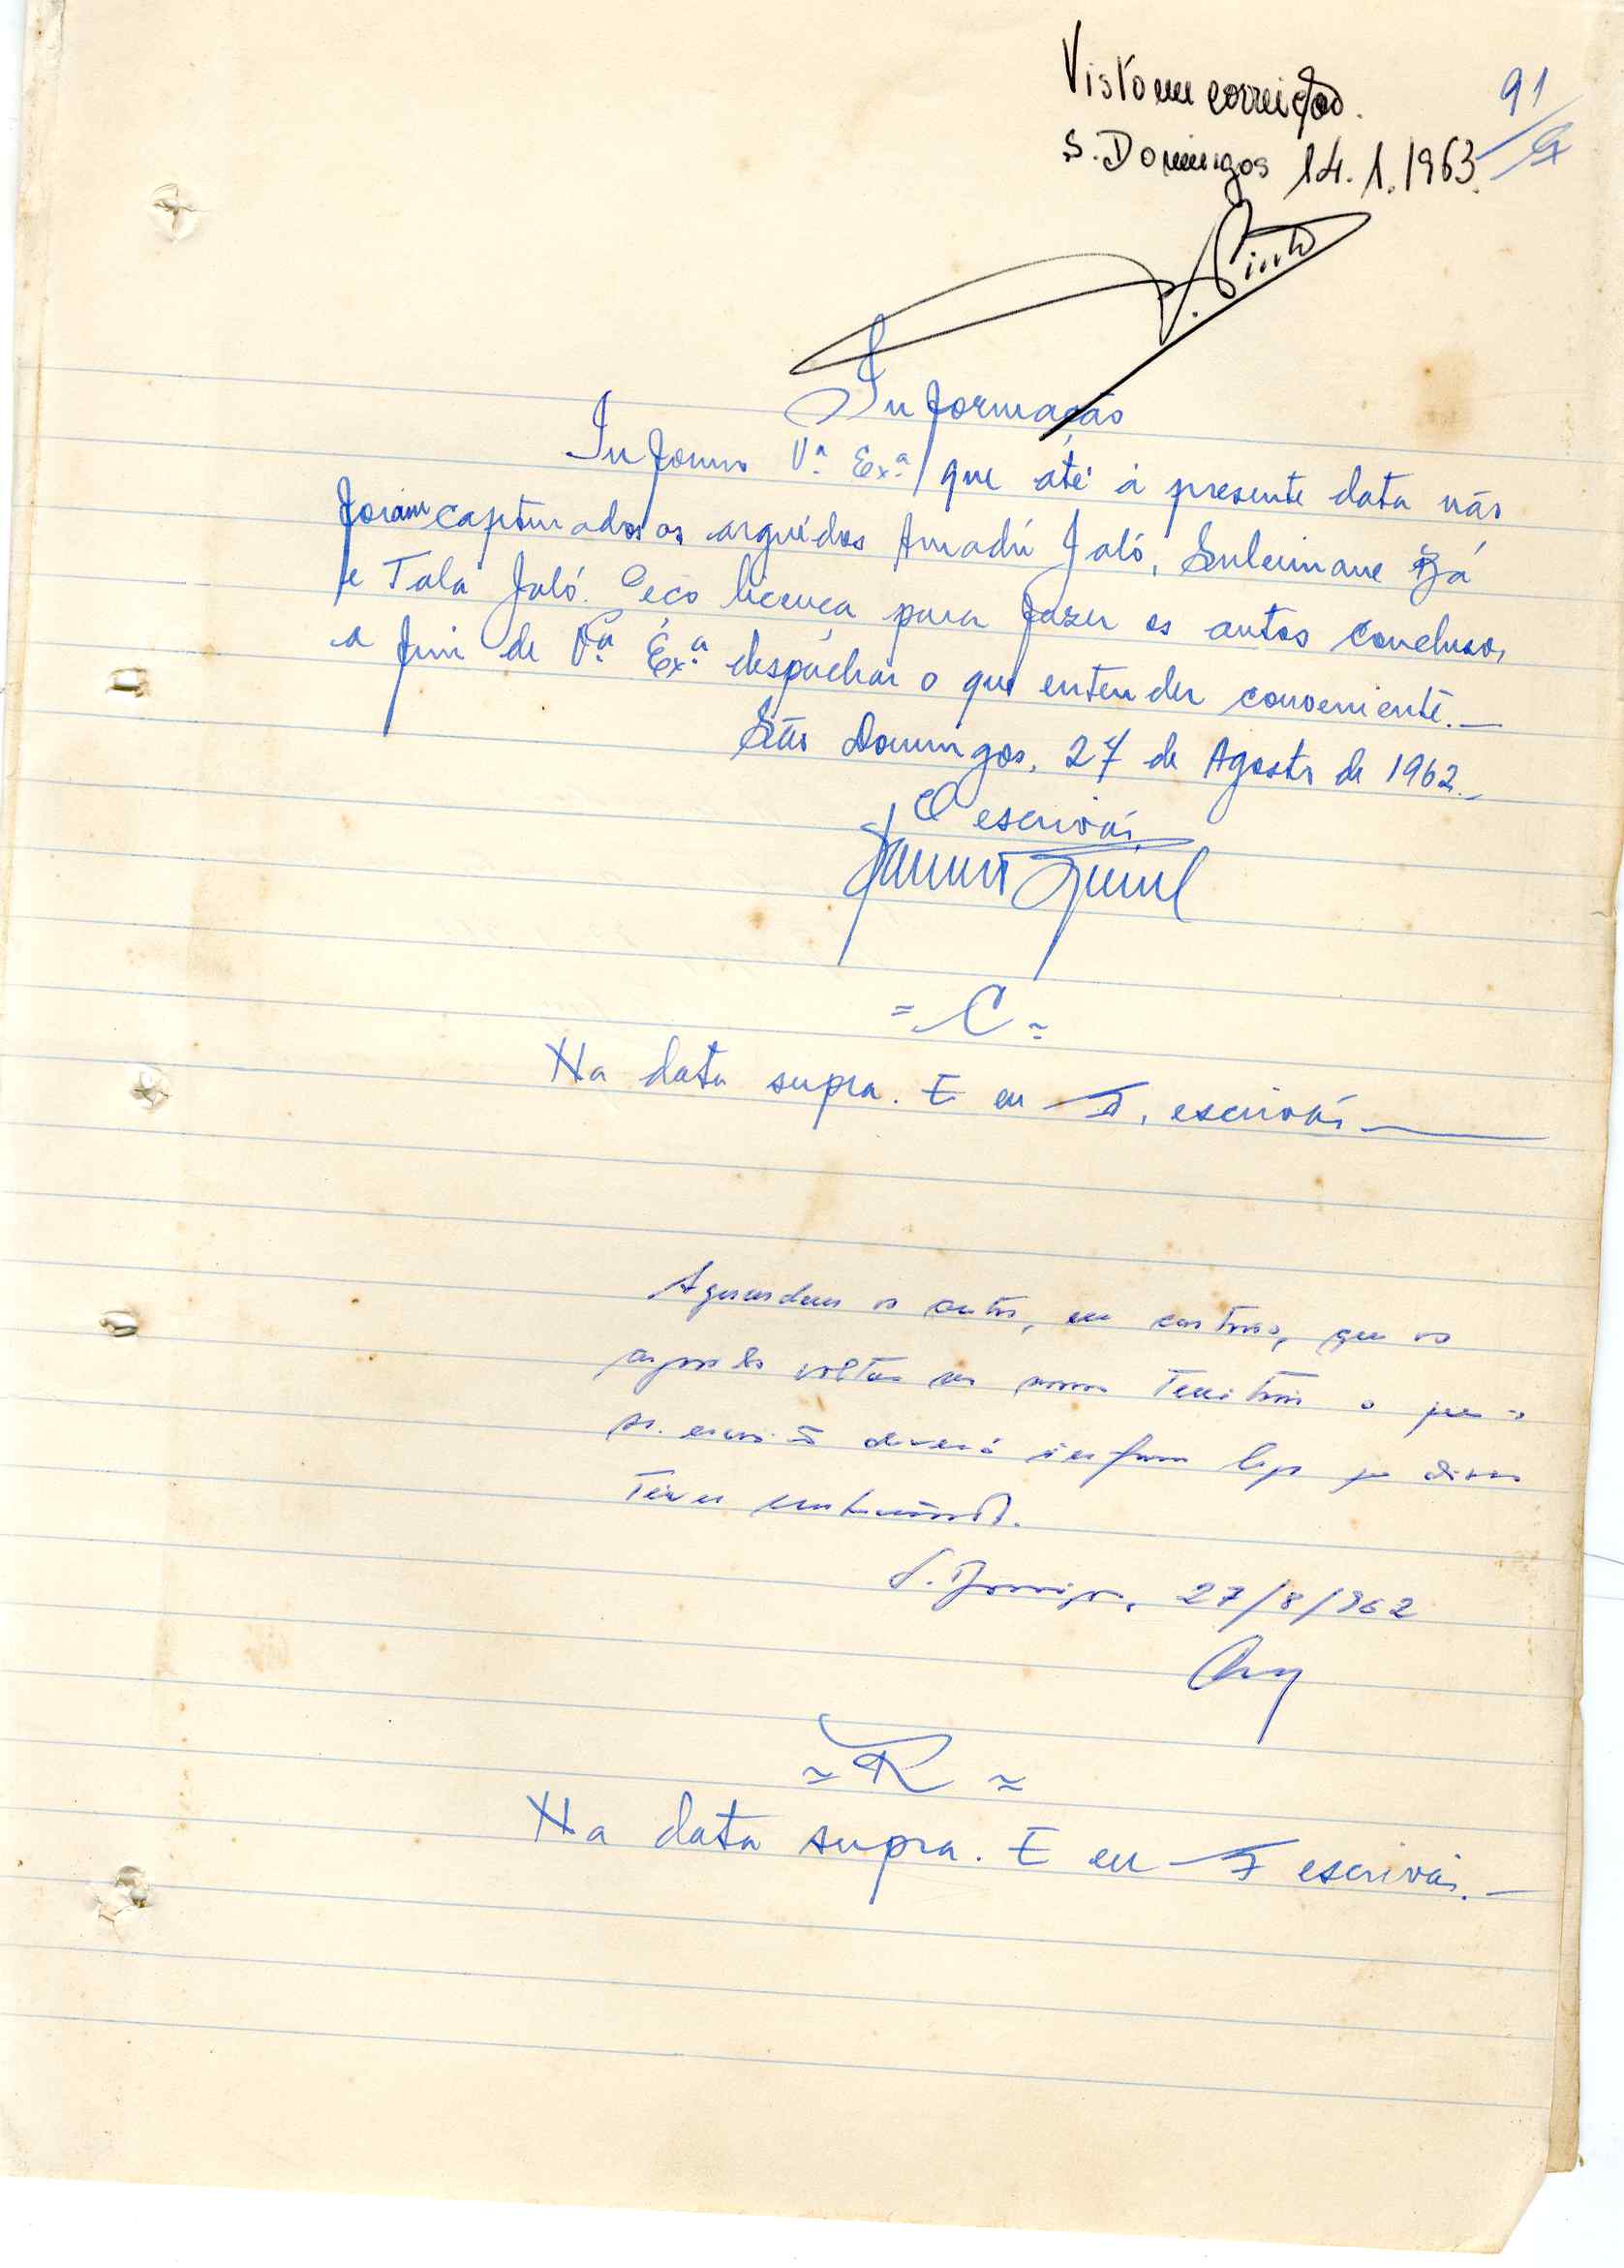 Visto em correição.
S. Domingos 14.1.1963.
91
Pinto
Informação
Informo V.ª Ex.ª que até à presente data não
foram capturados os arguidos Amadú Jaló, Suleimane Bá
e Tala Jaló. Peço licença para fazer os autos conclusos
a fim de V.ª Ex.ª despachar o que entender conveniente.—
São Domingos, 27 de Agosto de 1962.—
O escrivão,
= C =
Na data supra. E eu , escrivão
Aguardem os autos, em cartório, que os
voltem ao nosso Território o que o
sr. escrivão deverá informar logo que disso
tiver conhecimento.
S. Domingos, 27/8/962
= R =
Na data supra. E eu escrivão.—